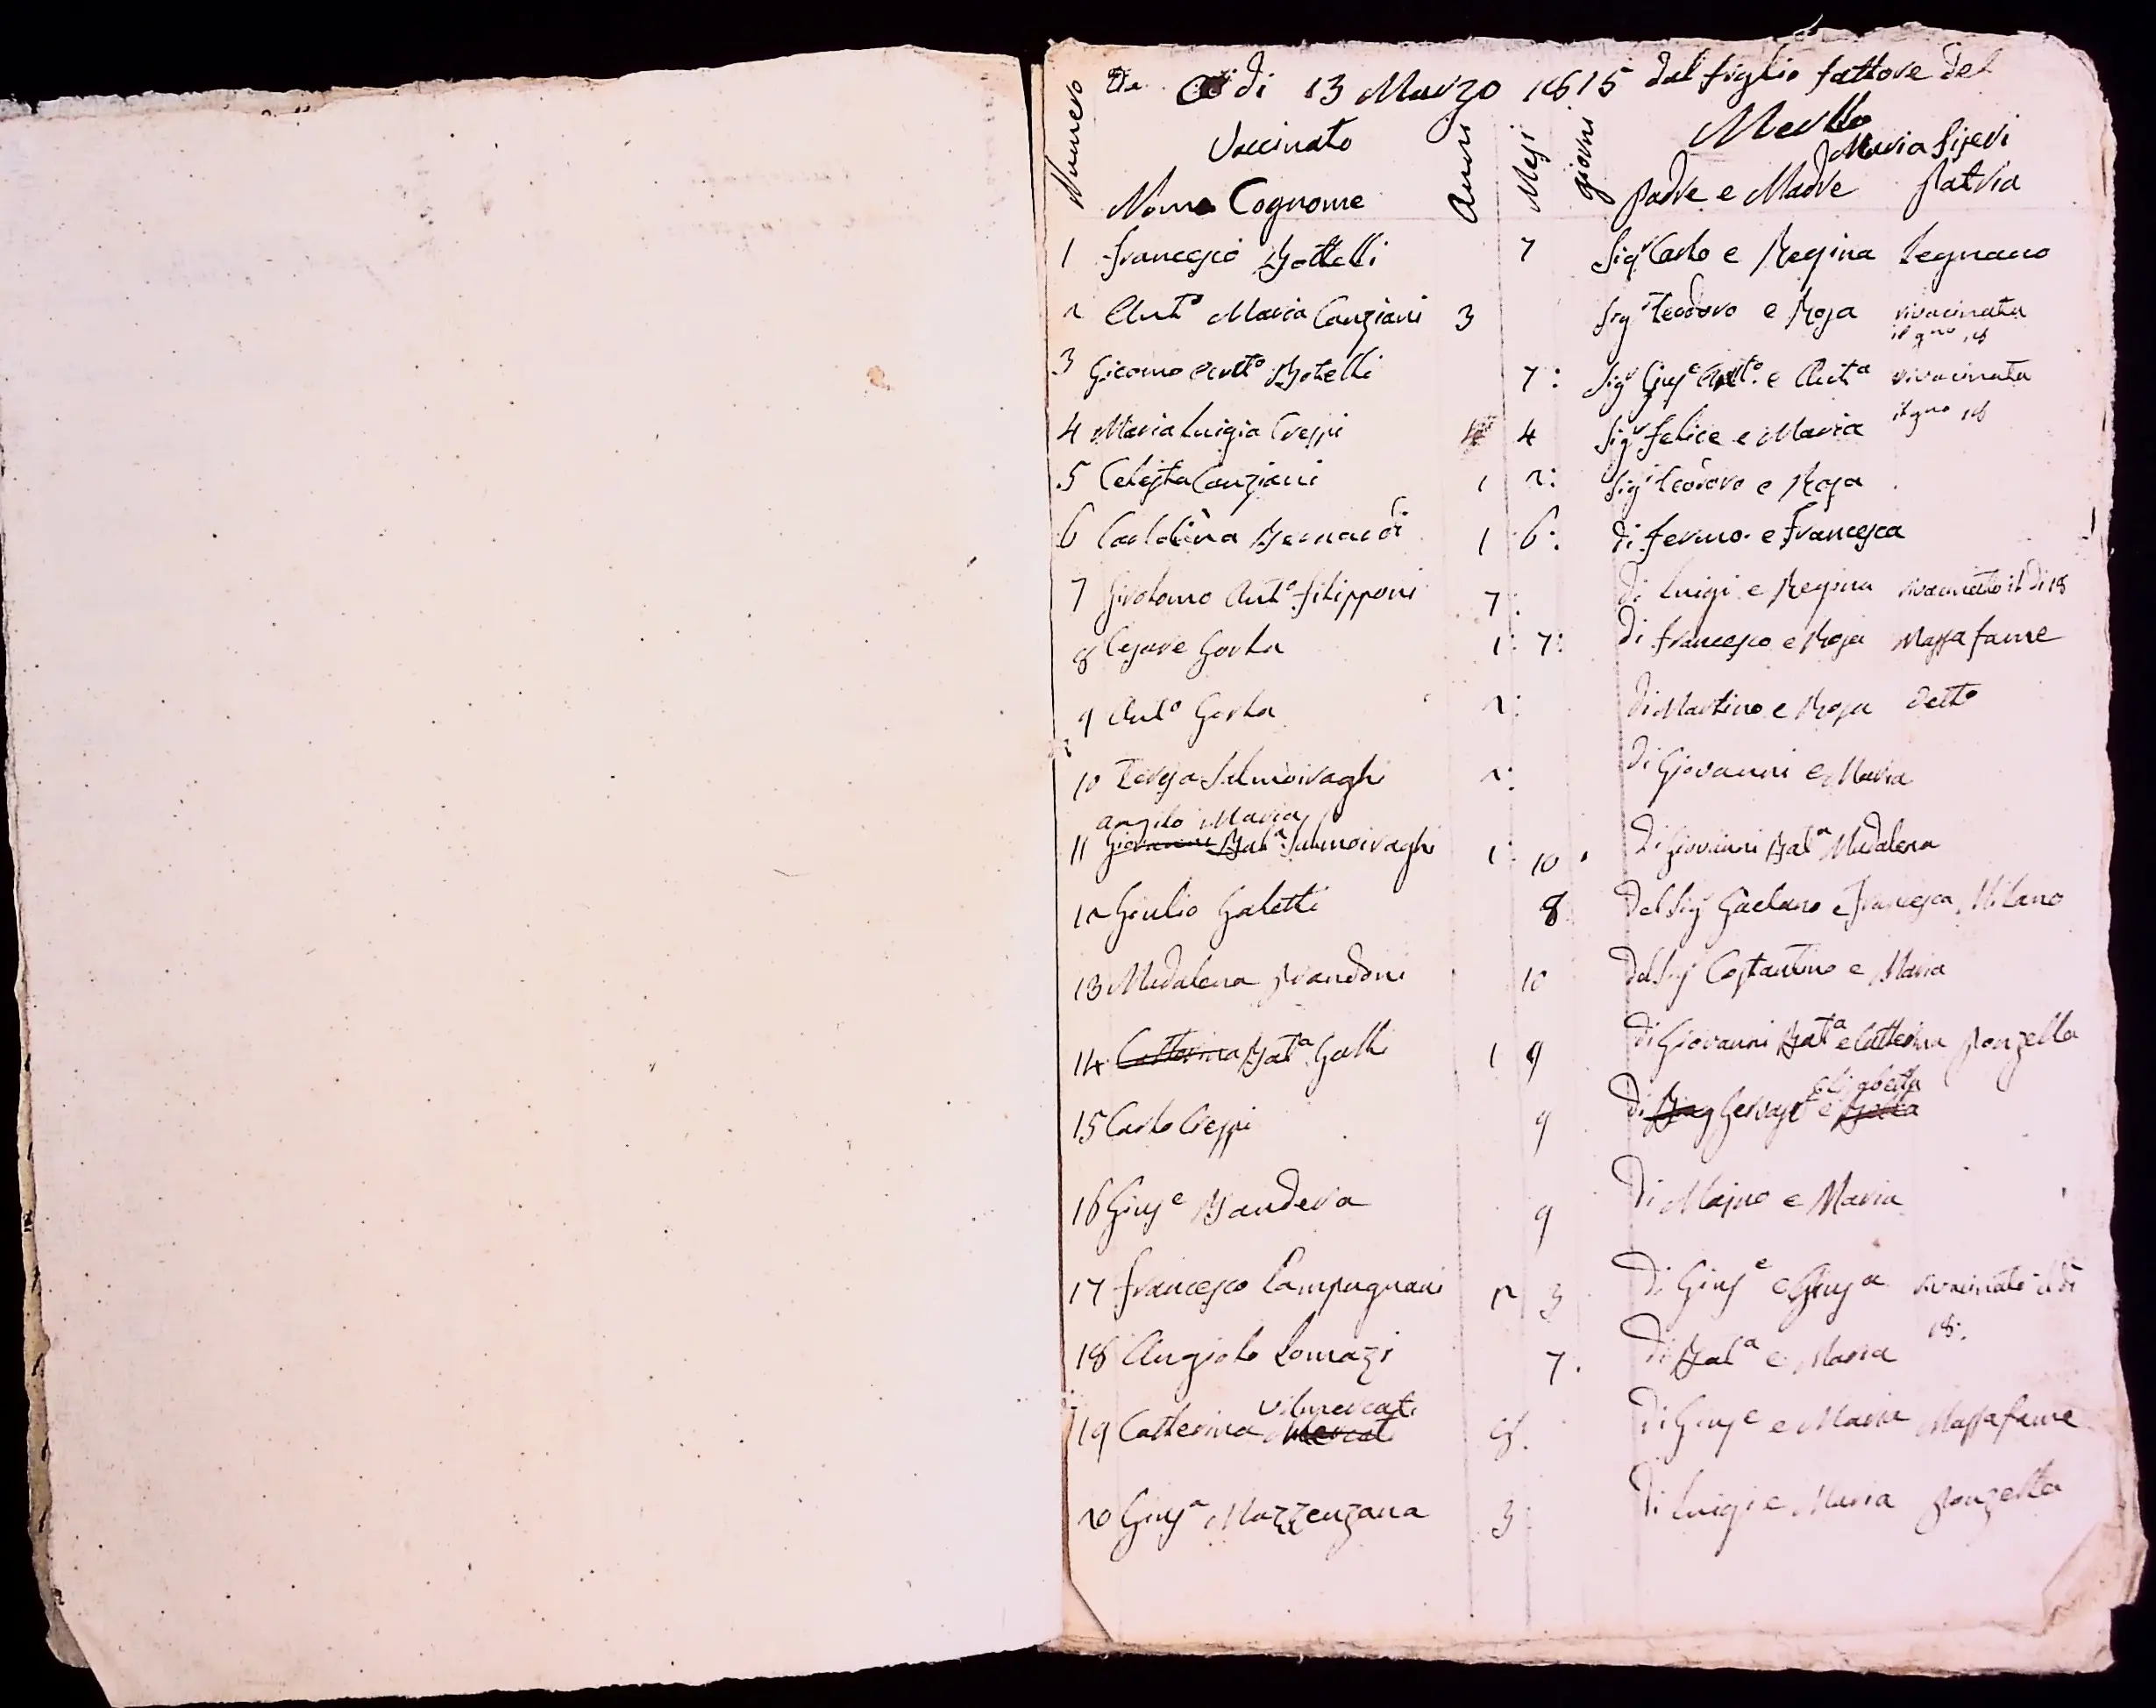 di 13 Marzo 1815 dal figlio fattore del
Merlla
Numero Vaccinato Anni Mesi giorni Maria
Nome Cognome Padre e Madre Patria
1 Francesco Bottelli 7 Sigr Carlo e Regina Legnano
2 Anto Maria Canziani 3 Sigr Teodoro e Rosa rivacinata
il gno 18
3 Gicomo Botelli 7: Sigr Giuse Anto. e Anta rivacinata
il gno 18
4 Maria Luigia Crespi 4 Sigr Felice e Maria
5 Celesta Canziani 1 2: Sigr Teodoro e Rosa
6 Bernardi 1 6: di Fermo e Francesca
7 Girolamo Anto Filipponi 7: di Luigi e Regina rivacinato il di 18
8 Cesare Gorla 1: 7: di Francesco e Rosa Massafame
9 Anto Gorla 2: di Martino e Rosa detto
10 Teresa Salmoiraghi 2: di Giovanni e Maria
Angilo Maria
11 Giovanni Bata Salmoiraghi 1: 10 di Giovanni Bata Madalena
12 Giulio Galetti 8 del Sigr Gaetano e Francesca Milano
13 Madalena Prandoni 10 del Sigr Costantino e Maria
14 Catterina Bata Galli 1 9 di Giovanni Bata e Catterina Ponzella
elisabetta
15 Carlo Crespi 9 di Gervaso e
16 Giuse Bandera 9 di Majno e Maria
17 Francesco Lampugnani 2 3 di Giuse e Giusa rivacinato il di
18:
18 Angiolo Lomazi 7. di Bata e Maria
Vilmercati
19 Catterina Mercati 8. di Giuse e Maria Massafame
20 Giusa Mazzenzana 3: di Luigi e Maria Ponzella